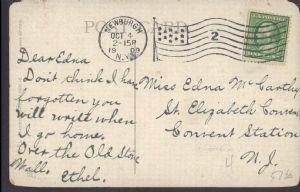 POST CARD
NEWBURGH
OCT 4
2-15P
1909
N.Y.
2
Dear Edna
Don't think I have
forgotten you
will write when
I go home.
Over the Old Stone
Wall.
Ethel.
Miss Edna McCarthy
St. Elizabeth Convent
Convent Station
N.J.